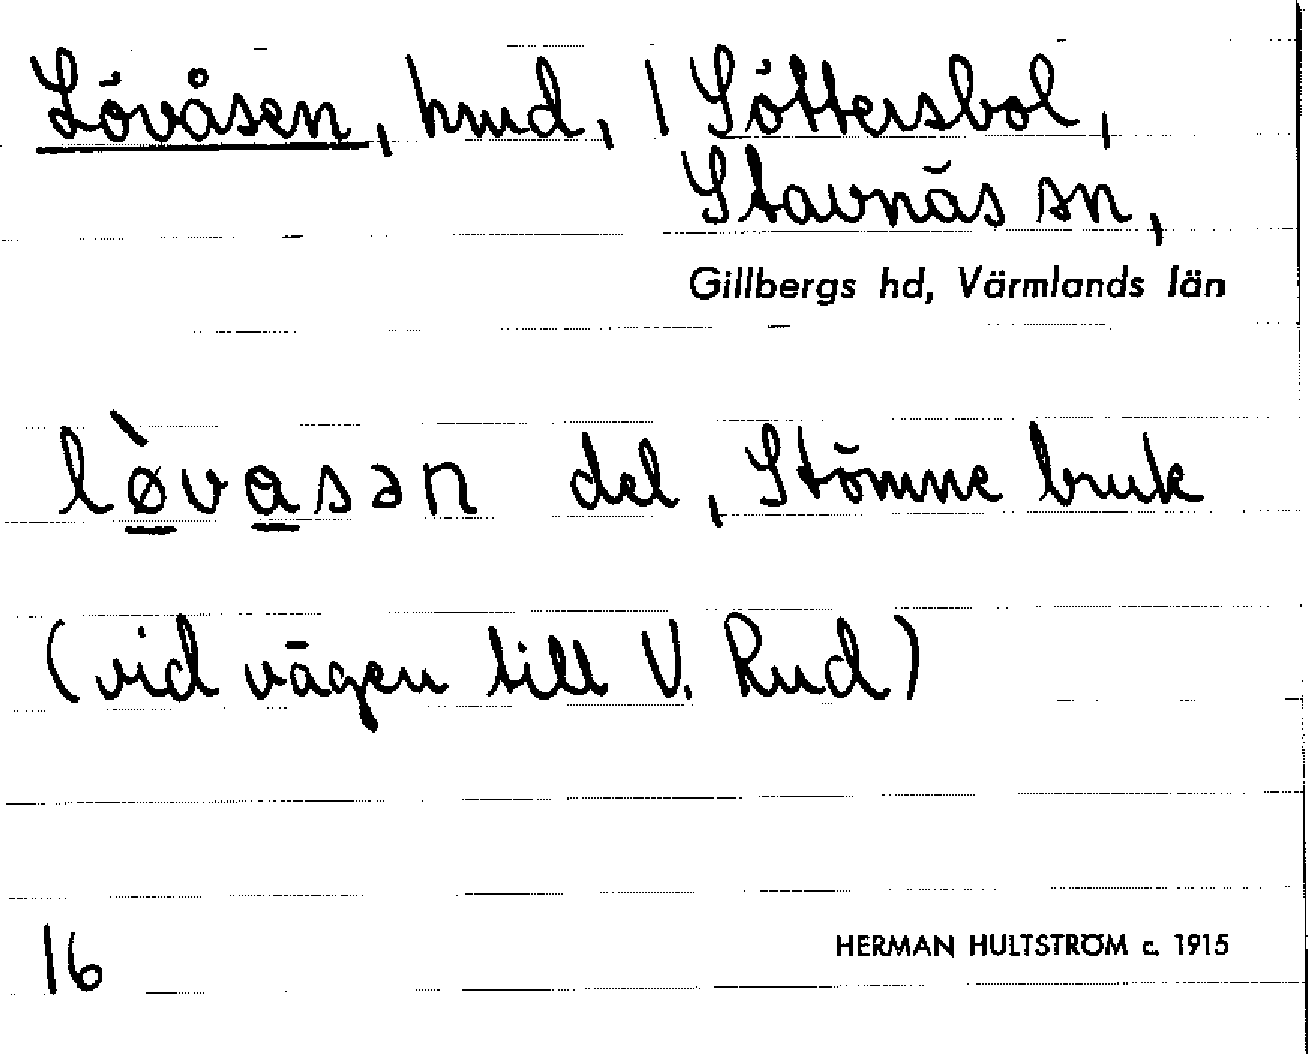 Lövåsen, hmd, 1 Söttersbol,
Stavnäs sn,
Gillbergs hd, Värmlands län
lø̲̀va̲sən del, Stömne bruk
(vid vägen till V. Rud)
16
HERMAN HULTSTRÖM c. 1915